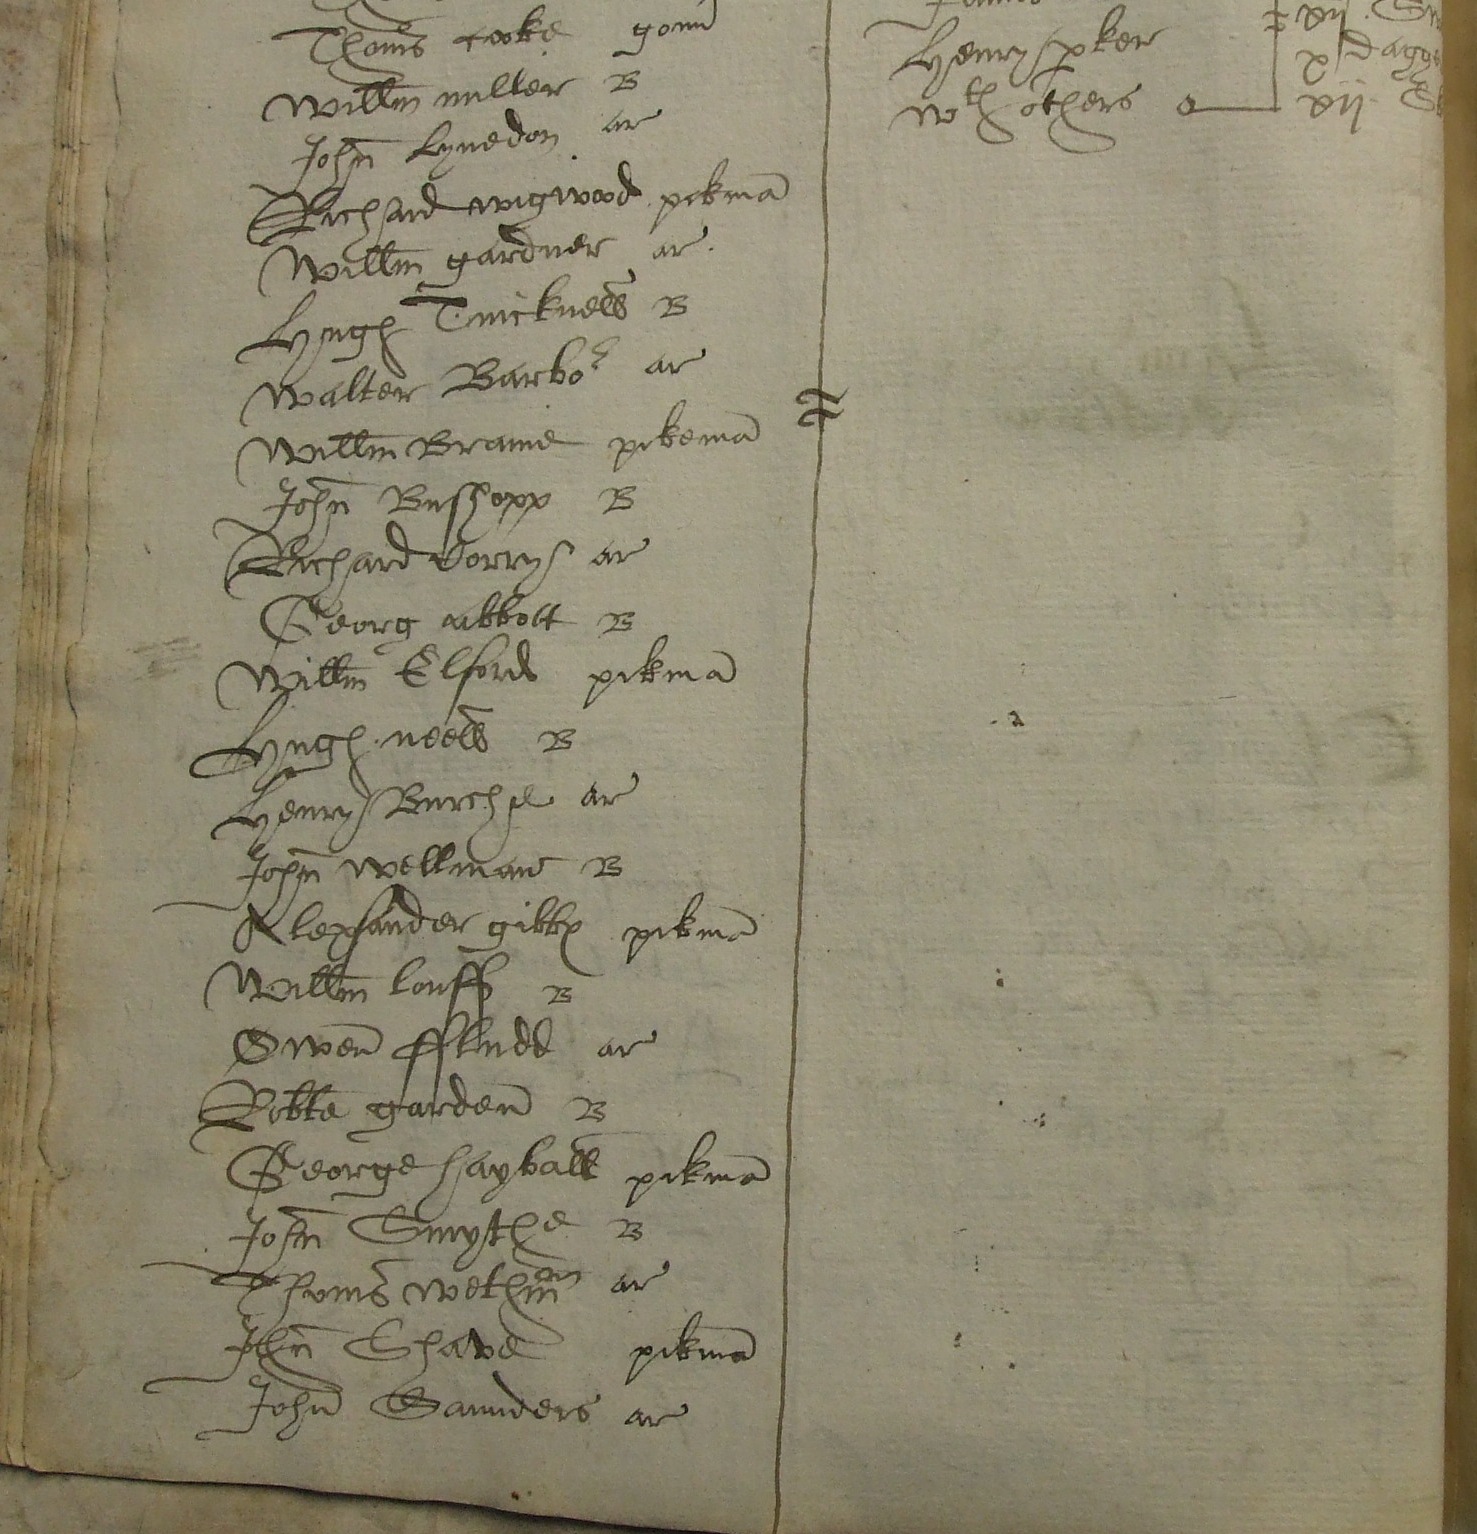 Thoms cooke gonn
Willm miller B
John Lynedon ar
Richard wigwood pikma
Willm gardner ar
Hugh Twicknell B
Walter Barbor ar
Willm Brame pikema
John Busshopp B
Richard Corrys ar
Georg abbott B
Willm Elford pikma
Hugh neell B
Henry Burchel ar
John wellman B
Alexsander gibbs pikma
Willm louff B
Owen ffludd ar
Robte garden B
George hayball pikma
John Smythe B
Thoms ar
John Shave pikma
John Saunders ar
Henry pker
wth others
xij
x dagg
xij